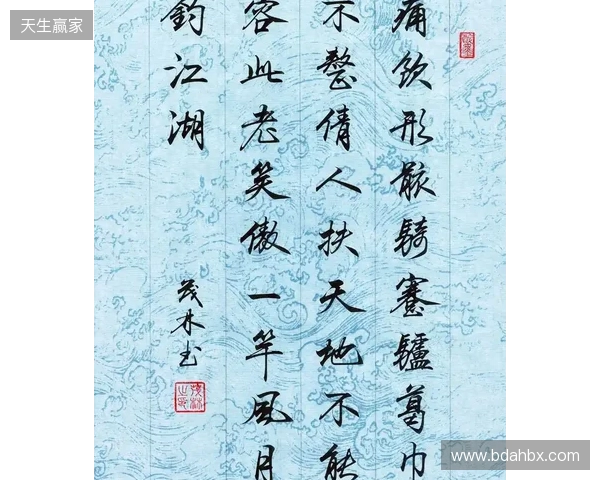 天生赢家
痛飲形骸騎蹇驢葛巾
不整倩人扶天地不能
容此老笑傲一竿風月
釣江湖
茂林书
www.bdahbx.com